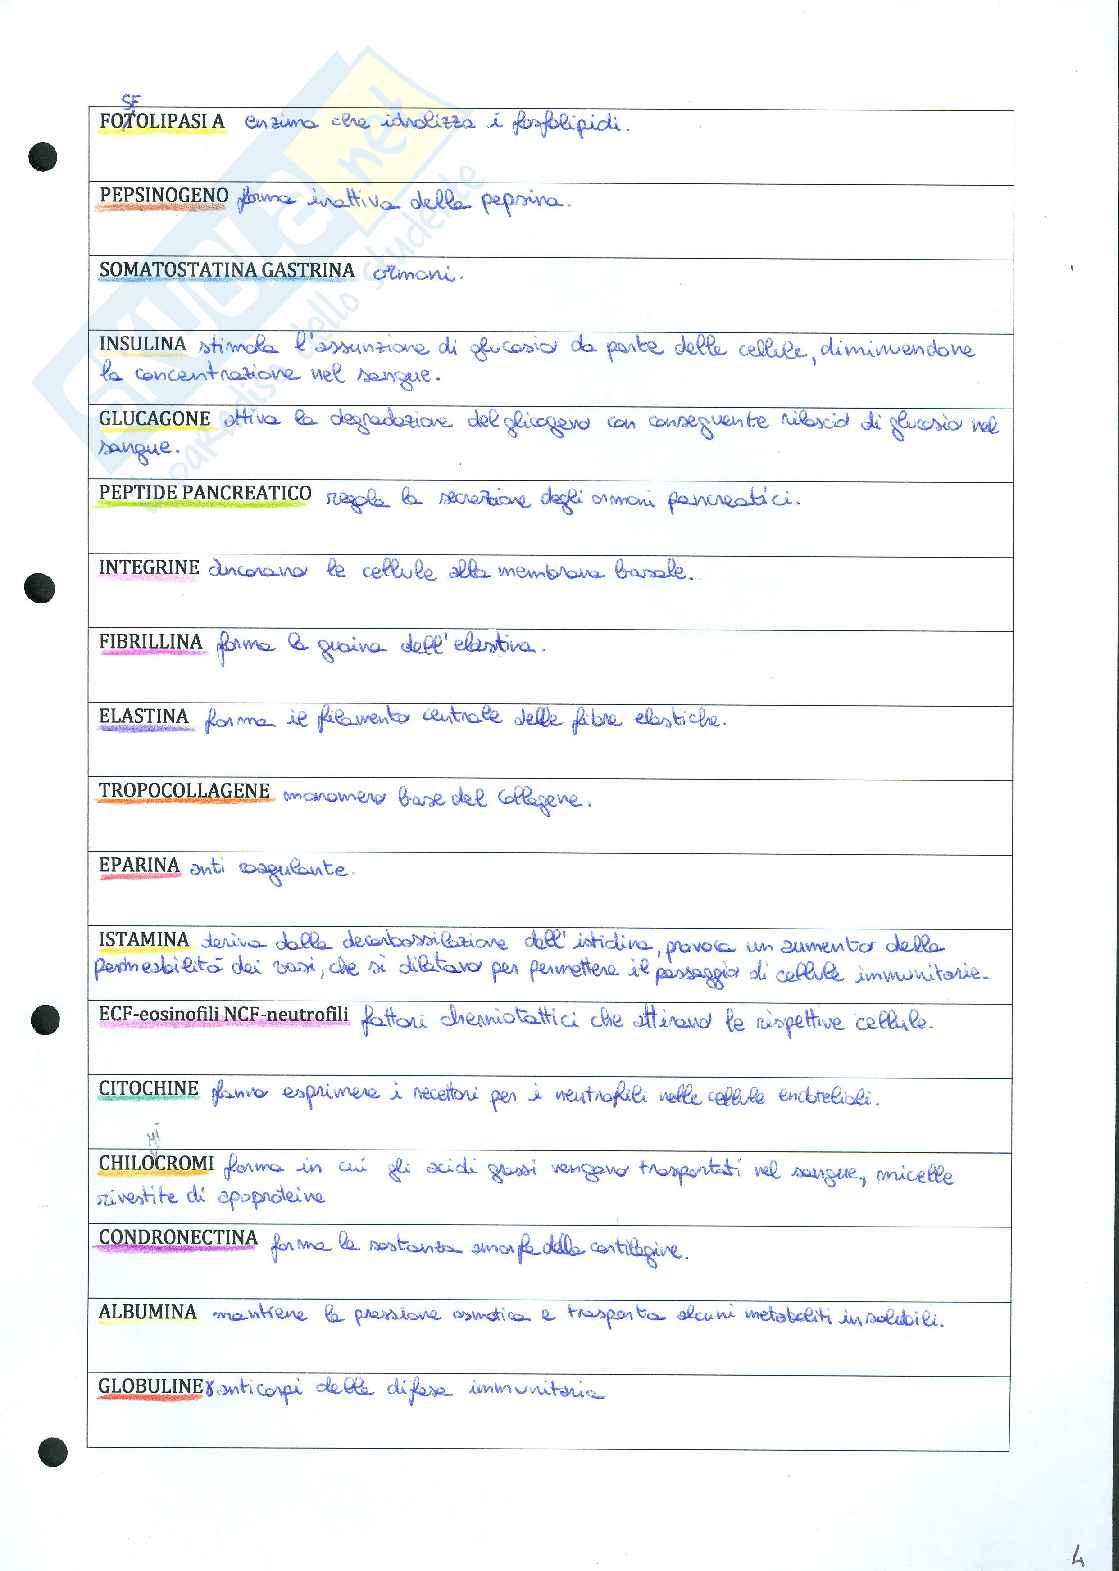 SF
FOTOLIPASI A enzima che idrolizza i fosfolipidi.
PEPSINOGENO forma inattiva della pepsina.
SOMATOSTATINA GASTRINA ormoni.
INSULINA stimola l'assunzione di glucosio da parte delle cellule, diminuendone
la concentrazione nel sangue.
GLUCAGONE attiva la degradazione del glicogeno con conseguente rilascio di glucosio nel
sangue.
PEPTIDE PANCREATICO regola la secrezione degli ormoni pancreatici.
INTEGRINE ancorano le cellule alla membrana basale.
FIBRILLINA forma la guaina dell'elastina.
ELASTINA forma il filamento centrale delle fibre elastiche.
TROPOCOLLAGENE monomero base del collagene.
EPARINA anti coagulante.
ISTAMINA deriva dalla decarbossilazione dell'istidina, provoca un aumento della
permeabilità dei vasi, che si dilatano per permettere il passaggio di cellule immunitarie.
ECF-eosinofili NCF-neutrofili fattori chemiotattici che attirano le rispettive cellule.
CITOCHINE fanno esprimere i recettori per i neutrofili nelle cellule endoteliali.
MI
CHILOCROMI forma in cui gli acidi grassi vengono trasportati nel sangue, micelle
rivestite di apoproteine
CONDRONECTINA forma la sostanza amorfa della cartilagine.
ALBUMINA mantiene la pressione osmotica e trasporta alcuni metaboliti insolubili.
GLOBULINE γ anticorpi della difesa immunitaria
4
SKUOLA.net
il paradiso dello studente